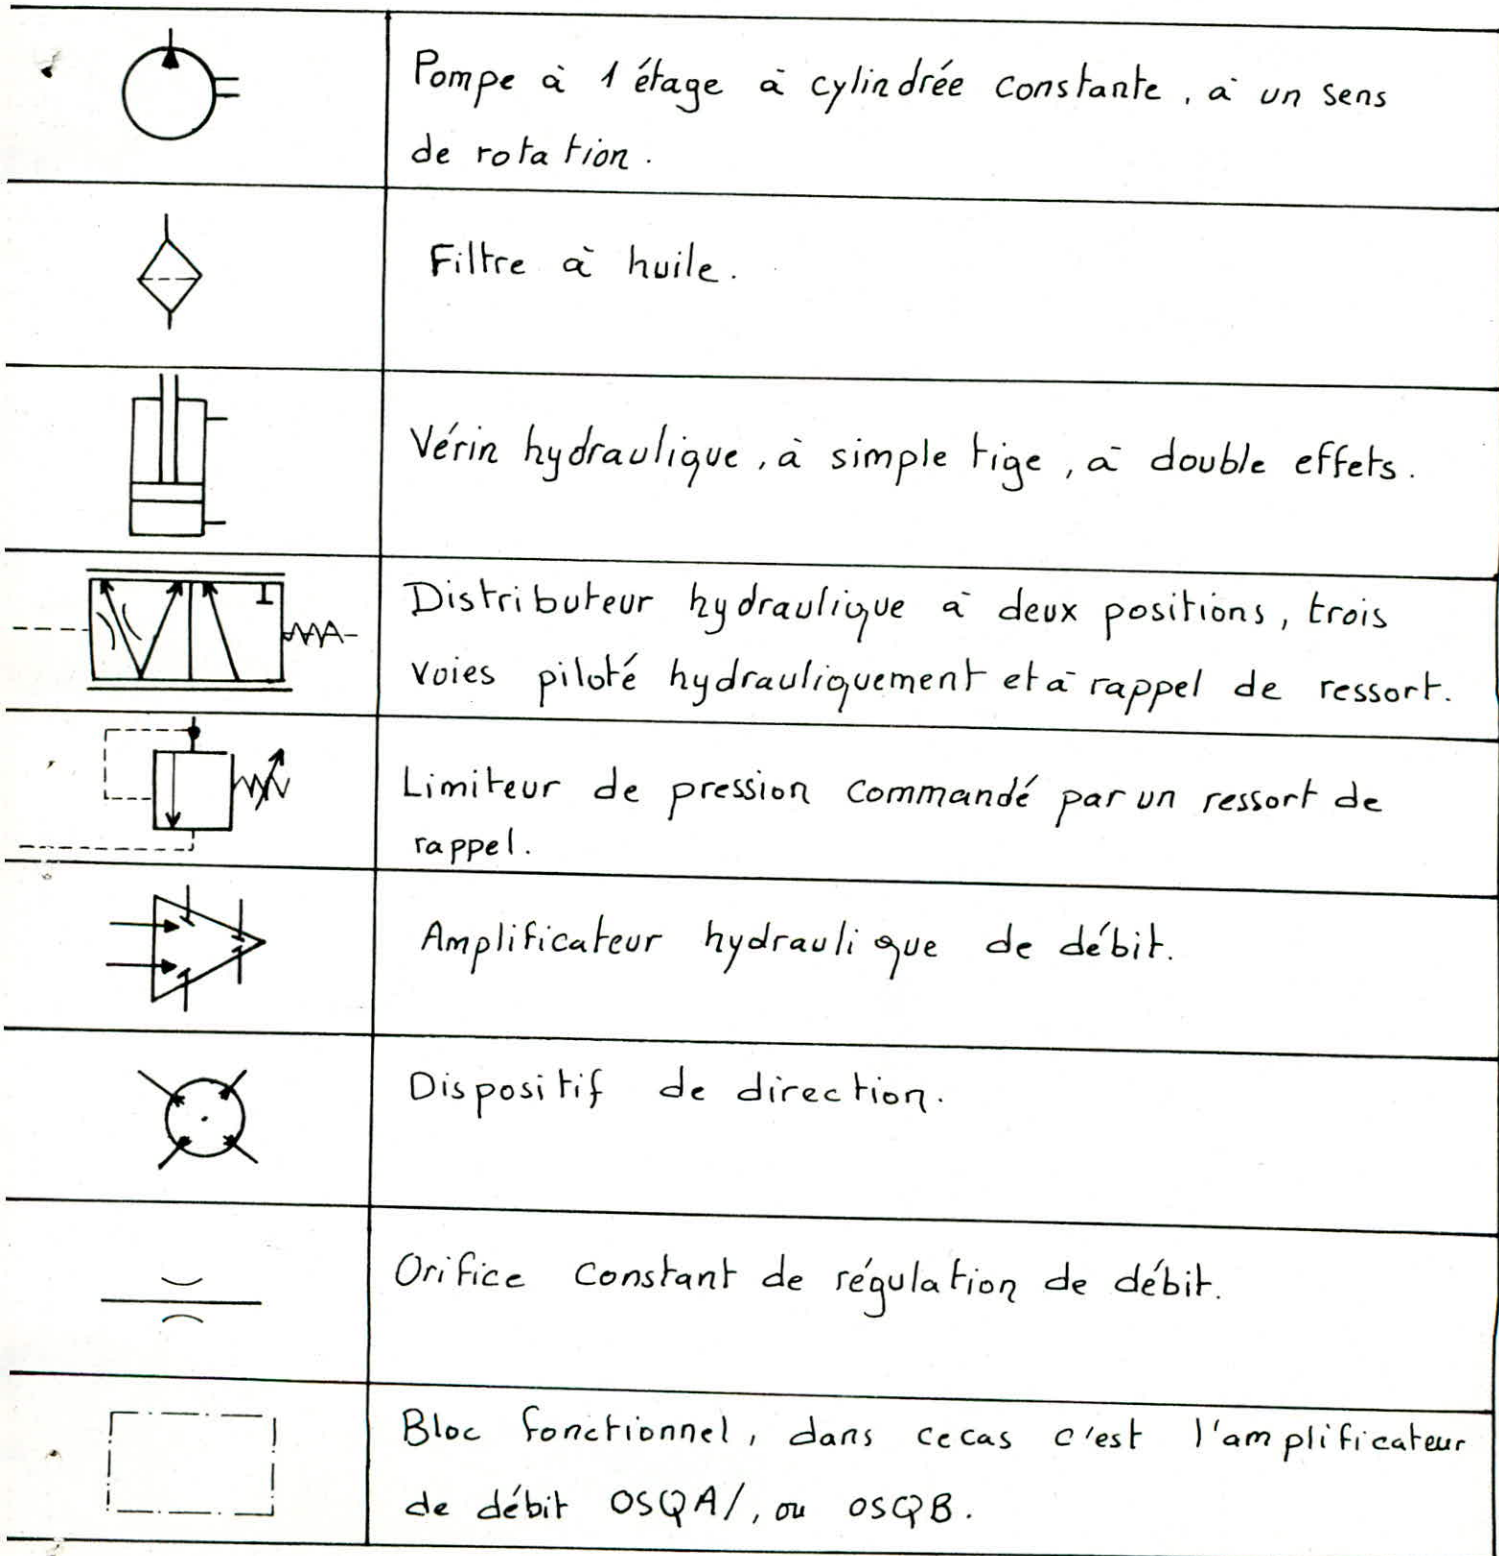 Pompe à 1 étage à cylindrée constante, à un sens
de rotation.
Filtre à huile.
Vérin hydraulique, à simple tige, à double effets.
Distributeur hydraulique à deux positions, trois
voies piloté hydrauliquement et à rappel de ressort.
Limiteur de pression commandé par un ressort de
rappel.
Amplificateur hydraulique de débit.
Dispositif de direction.
Orifice constant de régulation de débit.
Bloc fonctionnel, dans ce cas c'est l'amplificateur
de débit OSQA/, ou OSQB.